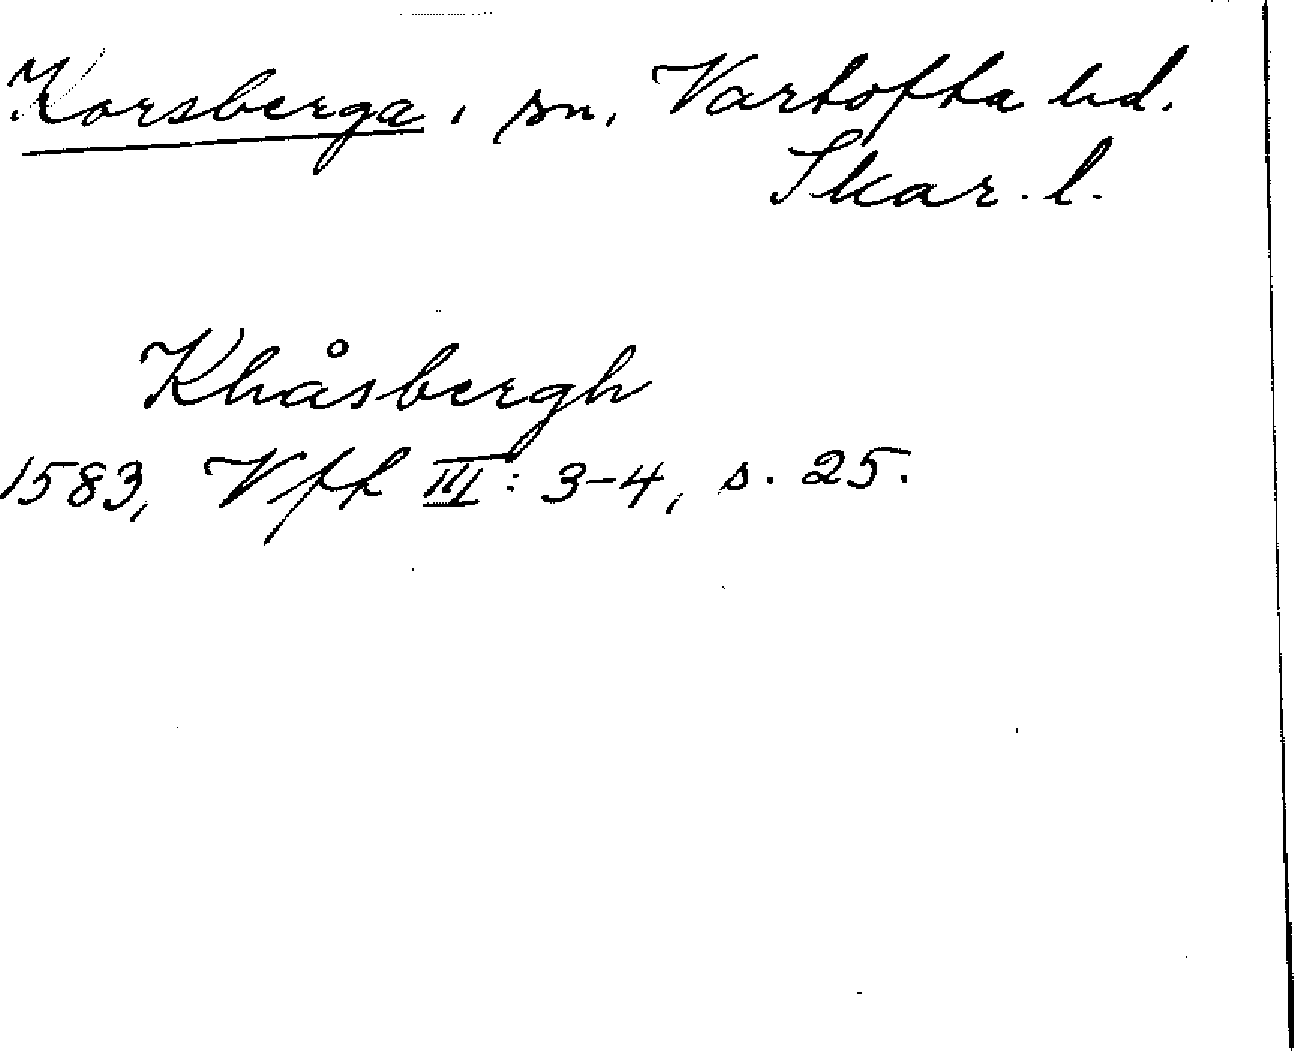 Korsberga, sn, Vartofta hd.
Skar. l.
Khåsbergh
1583, Vft III: 3-4, s. 25.